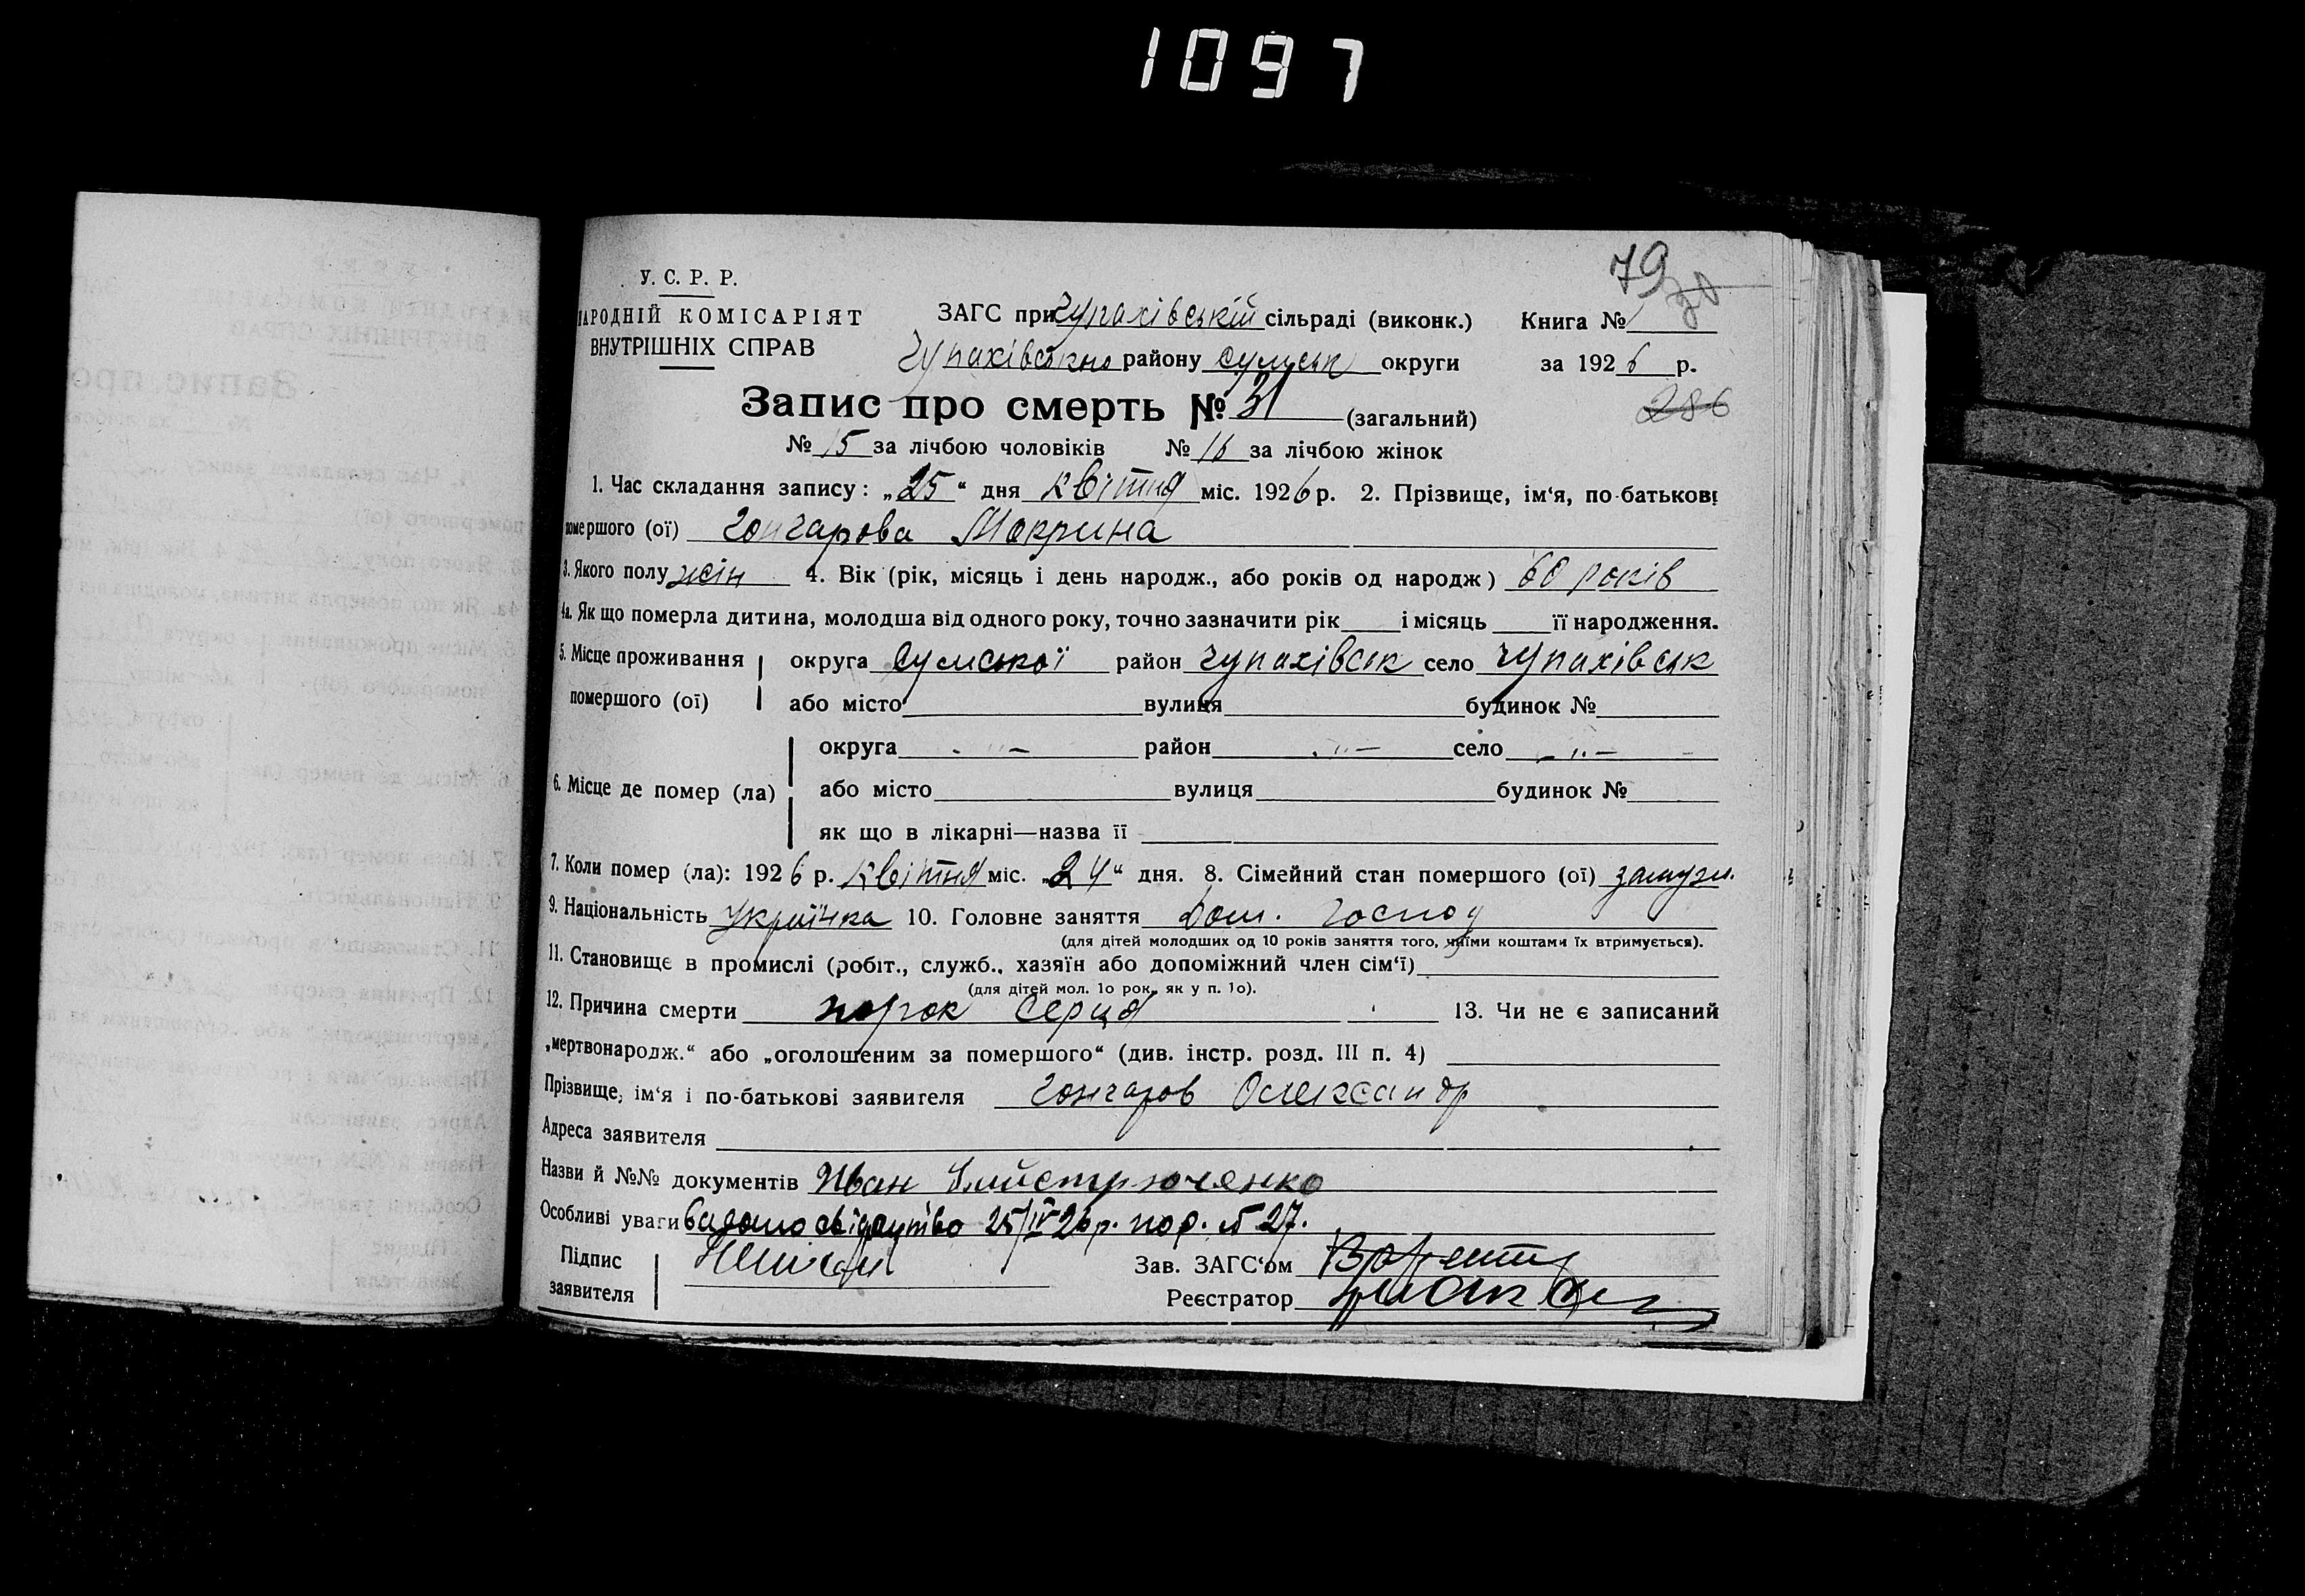 1097
79
У. С. Р. Р.
НАРОДНІЙ КОМІСАРІЯТ
ВНУТРІШНІХ СПРАВ
ЗАГС при Чупахівській сільраді (виконк.) Книга №
Чупахівського району Сумськ округи за 1926 р.
Запис про смерть № 31 (загальний)
286
№ 15 за лічбою чоловіків № 16 за лічбою жінок
1. Час складання запису: „25“ дня квітня міс. 1926 р. 2. Прізвище, ім‘я, по-батькові
помершого (ої) Гончарова Мокрина
3. Якого полу жін 4. Вік (рік, місяць і день народж., або років од народж) 60 років
4а. Як що померла дитина, молодша від одного року, точно зазначити рік і місяць її народження.
5. Місце проживання округа Сумської район Чупахівськ село Чупахівськ
помершого (ої) або місто вулиця будинок №
округа -„- район -„- село -„-
6. Місце де помер (ла) або місто вулиця будинок №
як що в лікарні—назва її
7. Коли помер (ла): 1926 р. квітня міс. „24“ дня. 8. Сімейний стан помершого (ої) замужн.
9. Національність Українка 10. Головне заняття Дом. господ
(для дітей молодших од 10 років заняття того, чиїми коштами їх втримується).
11. Становище в промислі (робіт., служб., хазяїн або допоміжний член сім‘ї)
(для дітей мол. 1о рок. як у п. 1о).
12. Причина смерти порок серця 13. Чи не є записаний
„мертвонародж.“ або „оголошеним за помершого“ (див. інстр. розд. III п. 4)
Прізвище, ім‘я і по-батькові заявителя Гончаров Олександр
Адреса заявителя
Назви й №№ документів Иван
Особливі уваги 25/IV 26 р. № 27.
Підпис
заявителя
Зав. ЗАГС‘ом
Реєстратор